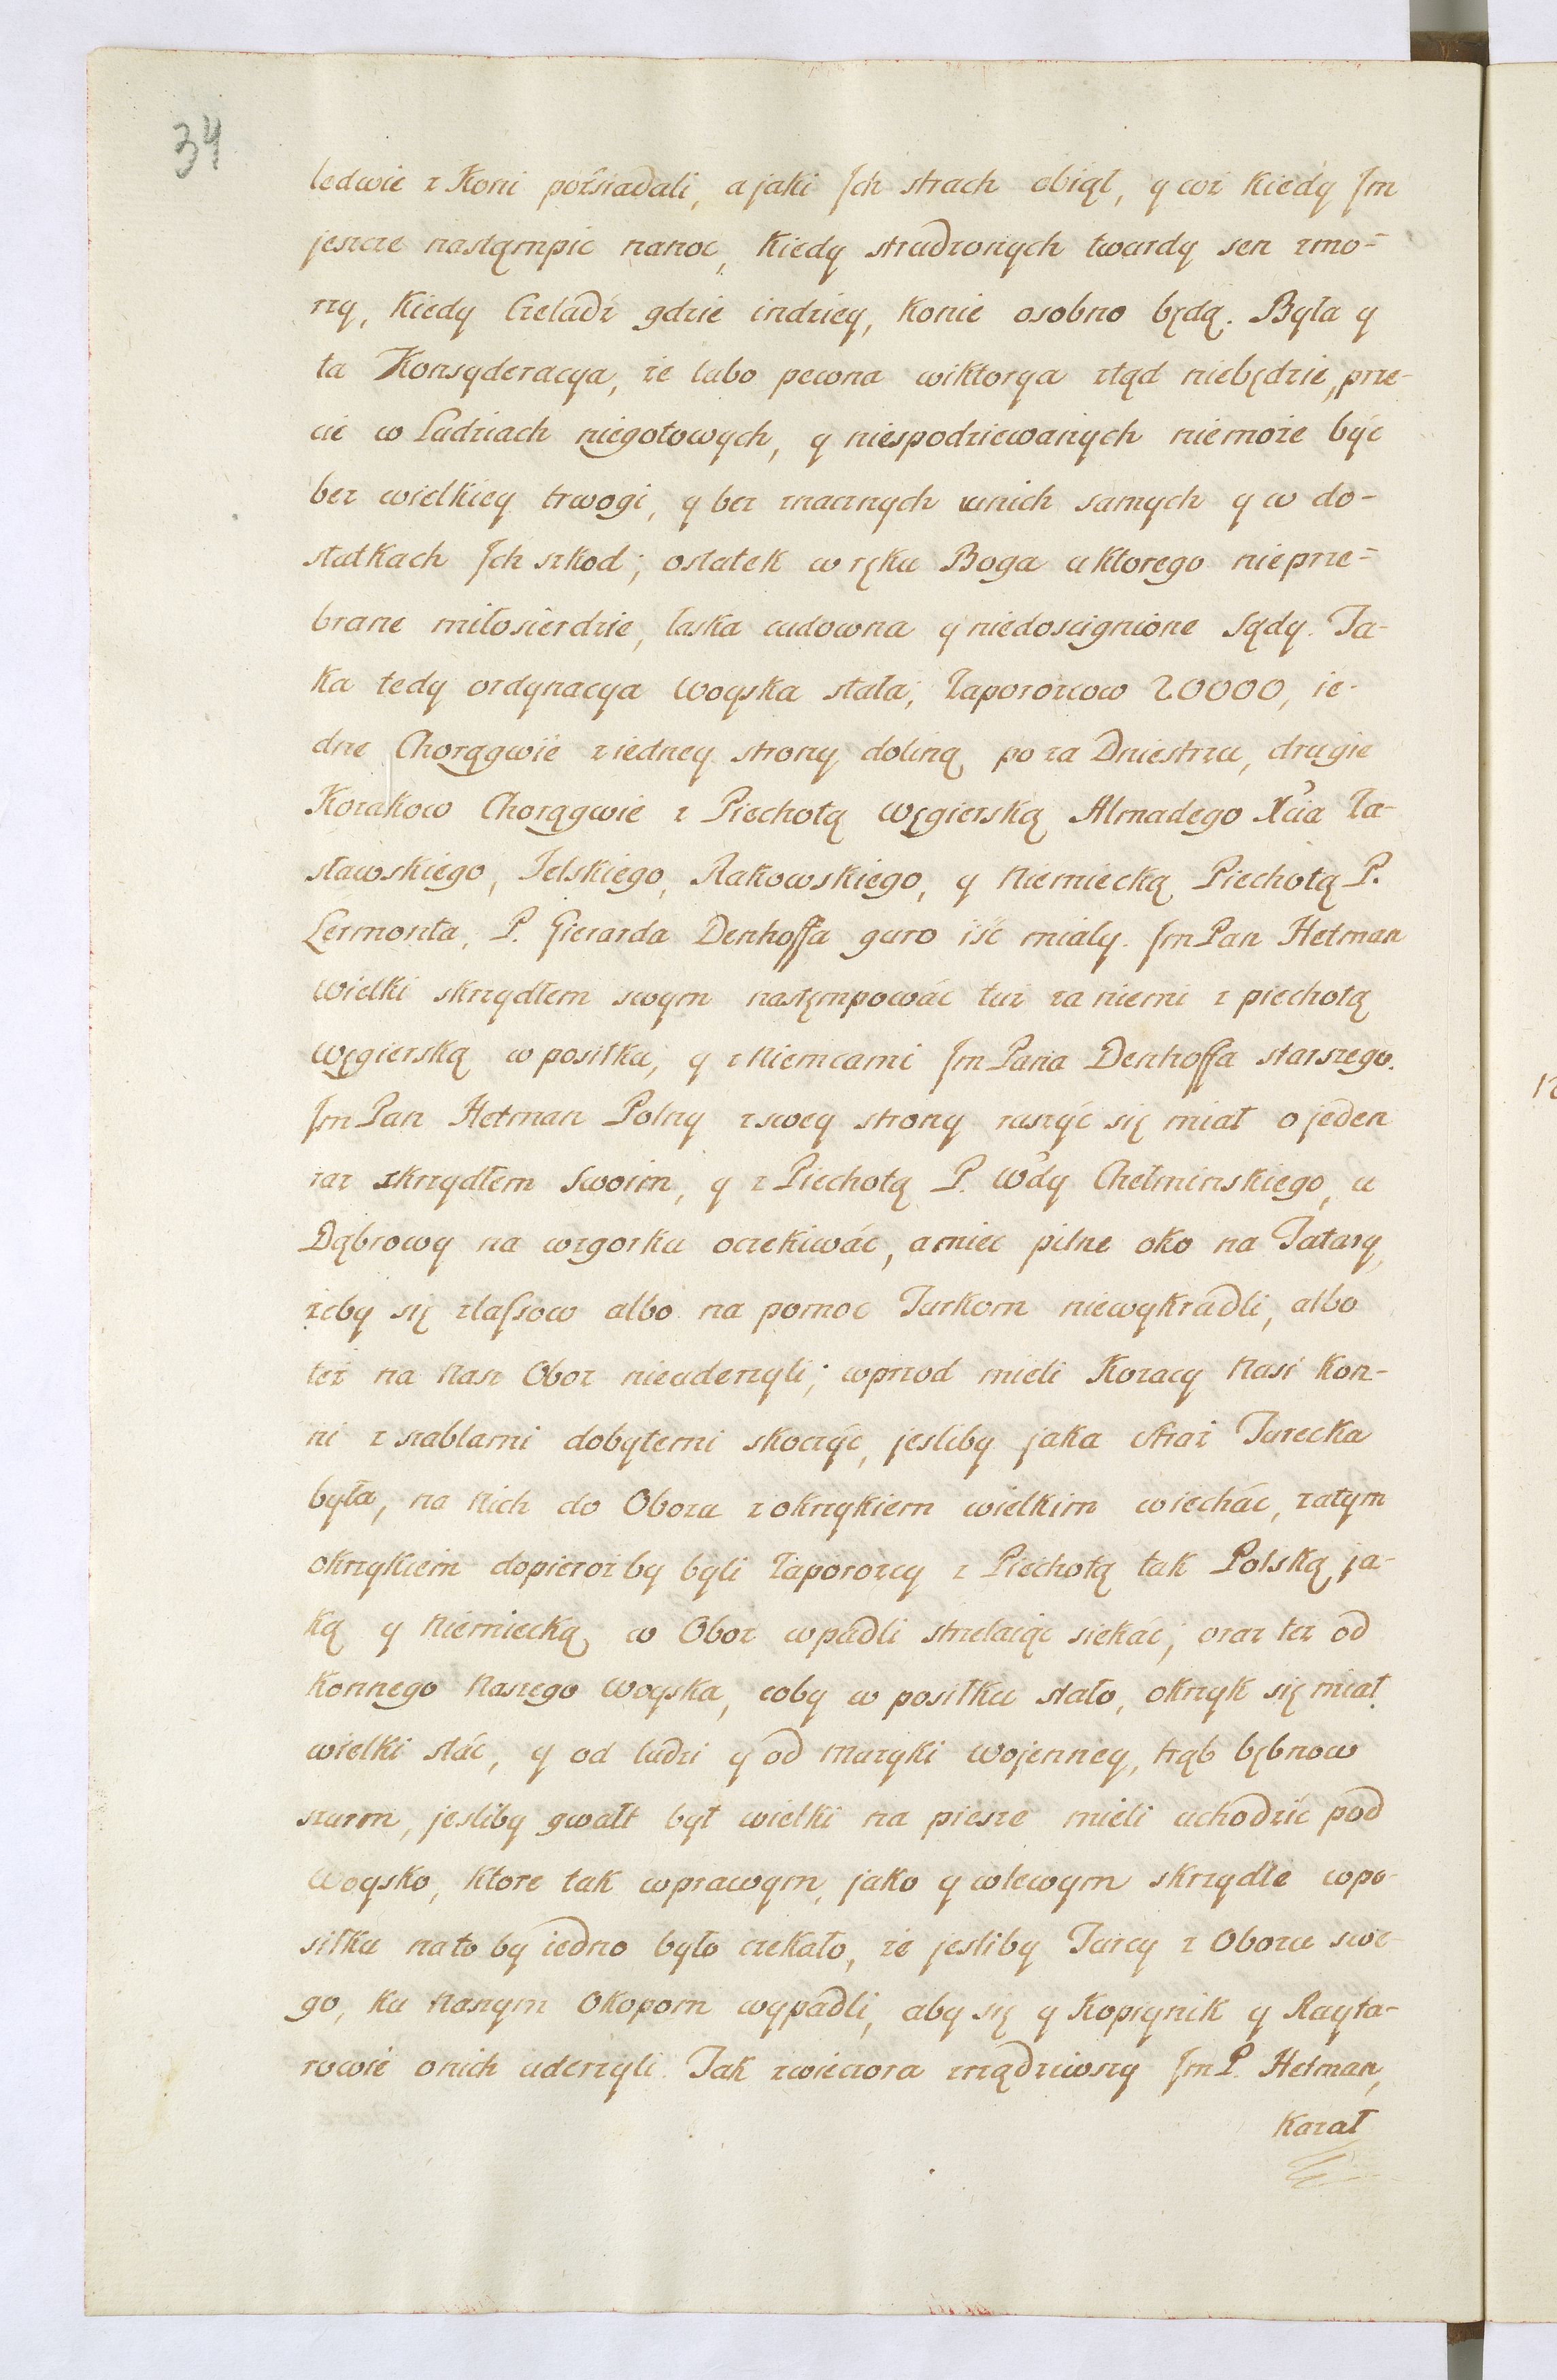 34
ledwie z Koni pozsiadali, a jaki Ich strach obiął, y coż kiedy Im
jeszcze nastąmpić nanoc, kiedy strudzonych twardy sen zmo-
rzy, kiedy Czeladź gdzie indziey, konie osobno będą. Była y
ta Konsyderacya, że lubo pewna wiktorya ztąd niebędzie, prze-
cie w Ludziach niegotowych, y niespodziewanych niemoże być
bez wielkiey trwogi, y bez znacznych wnich samych y w do-
statkach Ich szkod; ostatek w ręku Boga u ktorego nieprze-
brane miłosierdzie, łaska cudowna y niedoscignione Sądy. Ta-
ka tedy ordynacya woyska stała; Zaporozcow 20000, ie-
dne Chorągwie z iedney strony doliną po za Dniestrzu, drugie
Kozakow Chorągwie z Piechotą Węgierską Almadego Xcia Za-
sławskiego, Jelskiego, Rakowskiego, y Niemiecką Piechotą P.
Lermonta, P. Gierarda Denhoffa guro iść miały. Im Pan Hetman
Wielki skrzydłem swym nastęmpować tuż za niemi z piechotą
Węgierską w posiłku, y z Niemcami Im Pana Denhoffa starszego.
Im Pan Hetman Polny z swey strony ruszyć się miał o jeden
raz skrzydłem Swoim, y z Piechotą P. Wdy Chełminskiego, u
Dąbrowy na wzgorku oczekiwać, a mieć pilne oko na Tatary,
żeby się zlassow albo na pomoc Turkom niewykradli, albo
też na Nasz Oboz nieuderzyli; wprzod mieli Kozacy Nasi kon-
ni z szablami dobytemi skoczyć, jesliby jaka straż Turecka
była, na nich do Obozu z okrzykiem wielkim wiechać, zatym
okrzykiem dopierożby byli Zaporozcy z Piechotą tak Polską, ja-
ką y Niemiecką, w Oboz wpadli strzelaiąc siekać; oraz też od
Konnego Naszego Woyska, coby w posiłku stało, okrzyk się miał
wielki stać, y od ludzi y od muzyki wojenney, trąb bębnow
szurm, jesliby gwałt był wielki na piesze mieli uchodzić pod
Woysko, ktore tak wprawym, jako y wlewym skrzydle wpo-
siłku nato by iedno było czekało, że jesliby Turcy z Obozu swe-
go, ku Naszym Okopom wypadli, aby się y Kopiynik y Rayta-
rowie onich uderzyli. Tak zwieczora zrządziwszy Im P. Hetman,
Kazał